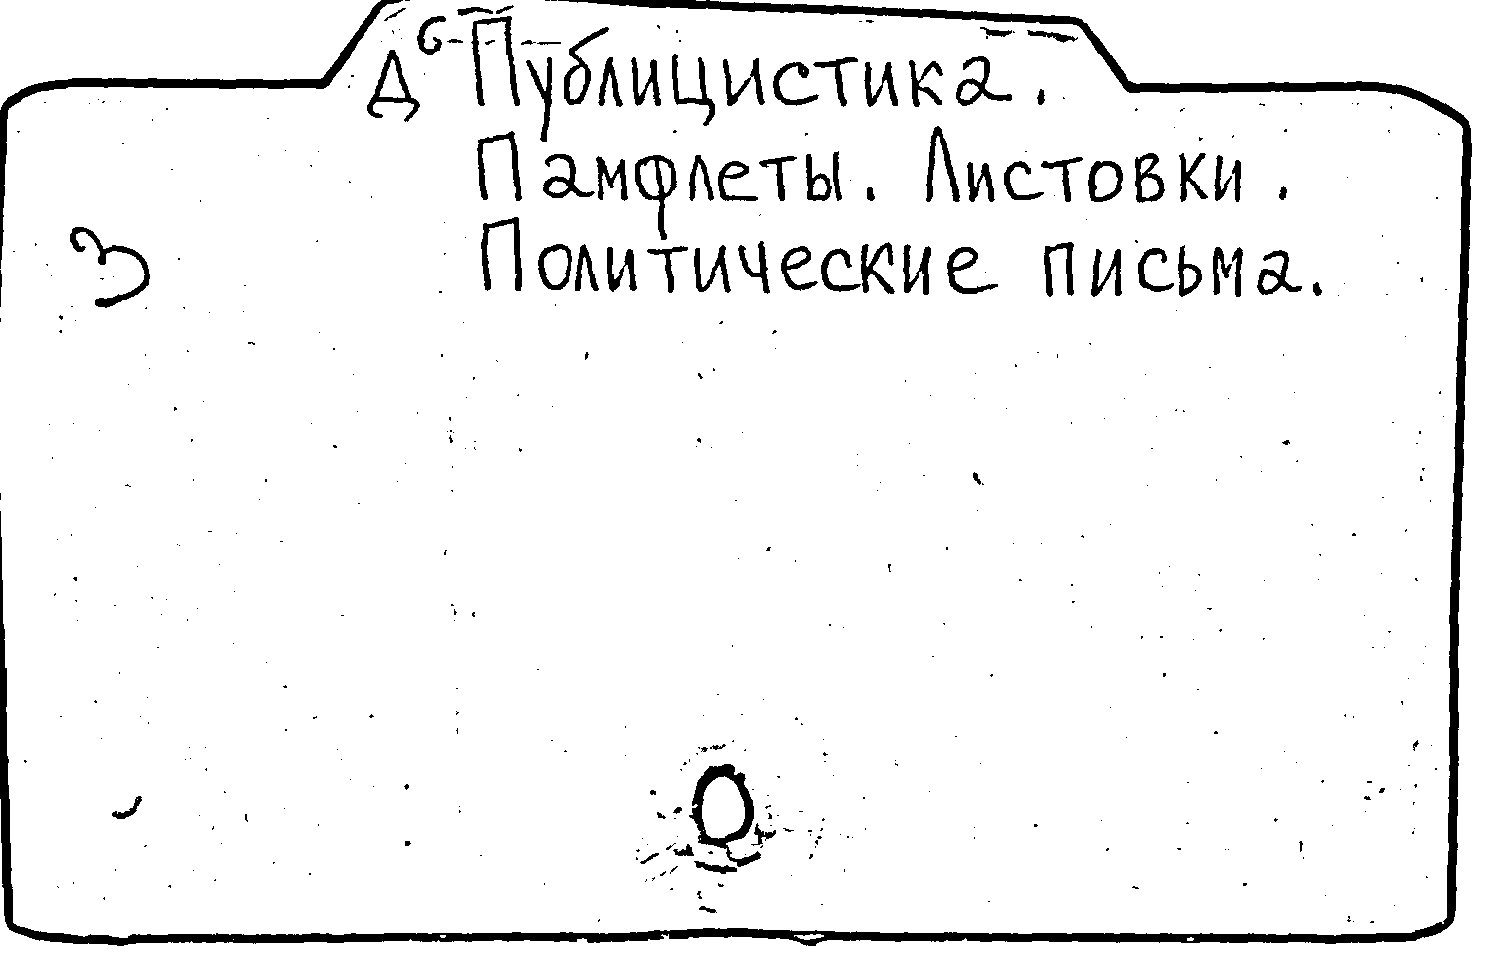 Д⁶ Публицистика.
Памфлеты. Листовки.
Политические письма.
З